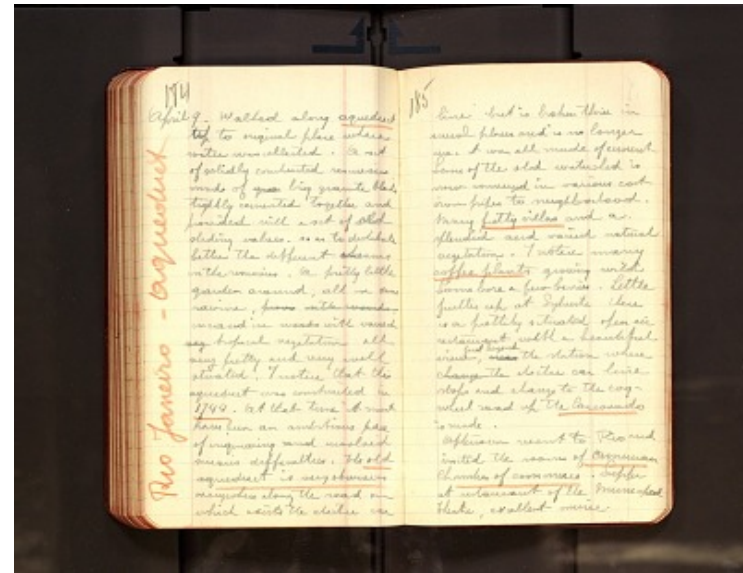 184
April 9. Walked along aqueduct
up to original place where
water was collected. A set
of solidly constructed reservoirs
made of big granite blocks
tightly cemented together and
provided with a set of
valves. so as to
better the different
in the ravine. A pretty little
garden around, all in
ravine,
in woods with varied
tropical vegetation all
very pretty and very well
situated. I notice that the
aqueduct was constructed in
1744. At that time it must
have been an ambitious piece
of engineering and involved
serious difficulties. The old
aqueduct is very
along the road on
which exists the electric car
Rio Janeiro - Aqueduct
185
line but is broken thru in
several places and is no longer
use. It was all made of cement
Some of the old watershed is
now conveyed in various cast
iron pipes to neighborhood.
Many pretty villas and a
splendid and varied natural
vegetation. I notice many
coffee plants growing wild
Some bore a few berries. Little
further up at Sylvestre there
is a prettily situated open air
restaurant with a beautiful
view, just beyond the station where
the electric car line
stops and change to the cog-
wheel road up the Corcovado
is made.
Afternoon went to Rio and
visited the rooms of
Chamber of commerce. Supper
at restaurant of the Municipal
Theatre, excellent music